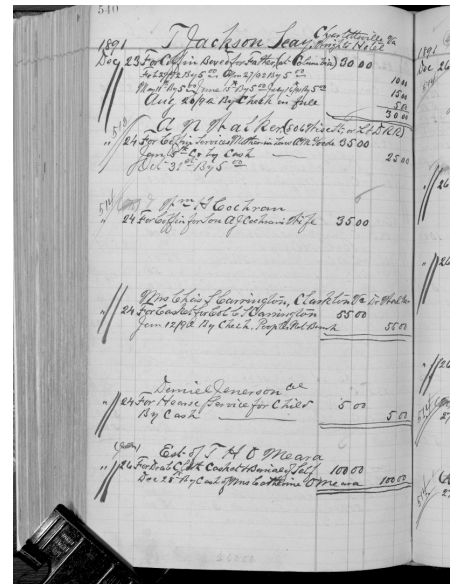 510
1891 T Jackson Seay, Charlottesville Va
Wrights Hotel
Dec 23 For Coffin Boxed for Father, at Columbia 30 00
Feb 29/92 By 5 00 Apr 27/92 By 5 00 10 00
May 11th By 5 00 June 15th By 5 00 July 16 By 5 00 15 00
Aug 20/92 By Check in full 5 00
30 00
510 A N Walker
" 24 For Coffin Services Mother in Law 35 00
Jany 5th Cr by Cash 25 00
Oct 31st By 5 00
514 Wm H Cochran
" 24 For Coffin for Son A J Cochran's Wife 35 00
Mrs Chas S Carrington, Clarkton Va
" 24 For Casket for Est C S Carrington 55 00
Jan 12/92 By Check, Peoples Nat Bank 55 00
Daniel Jenerson Col
" 24 For Hearse Service for Child 5 00
By Cash 5 00
Est of T H O Meara
" 26 For Drab Cloth Casket & Burial of Self 100 00
Dec 28th By Cash of Mrs Catherine O Meara 100 00
1891
Dec 26
" 26
" 26
" 26
514